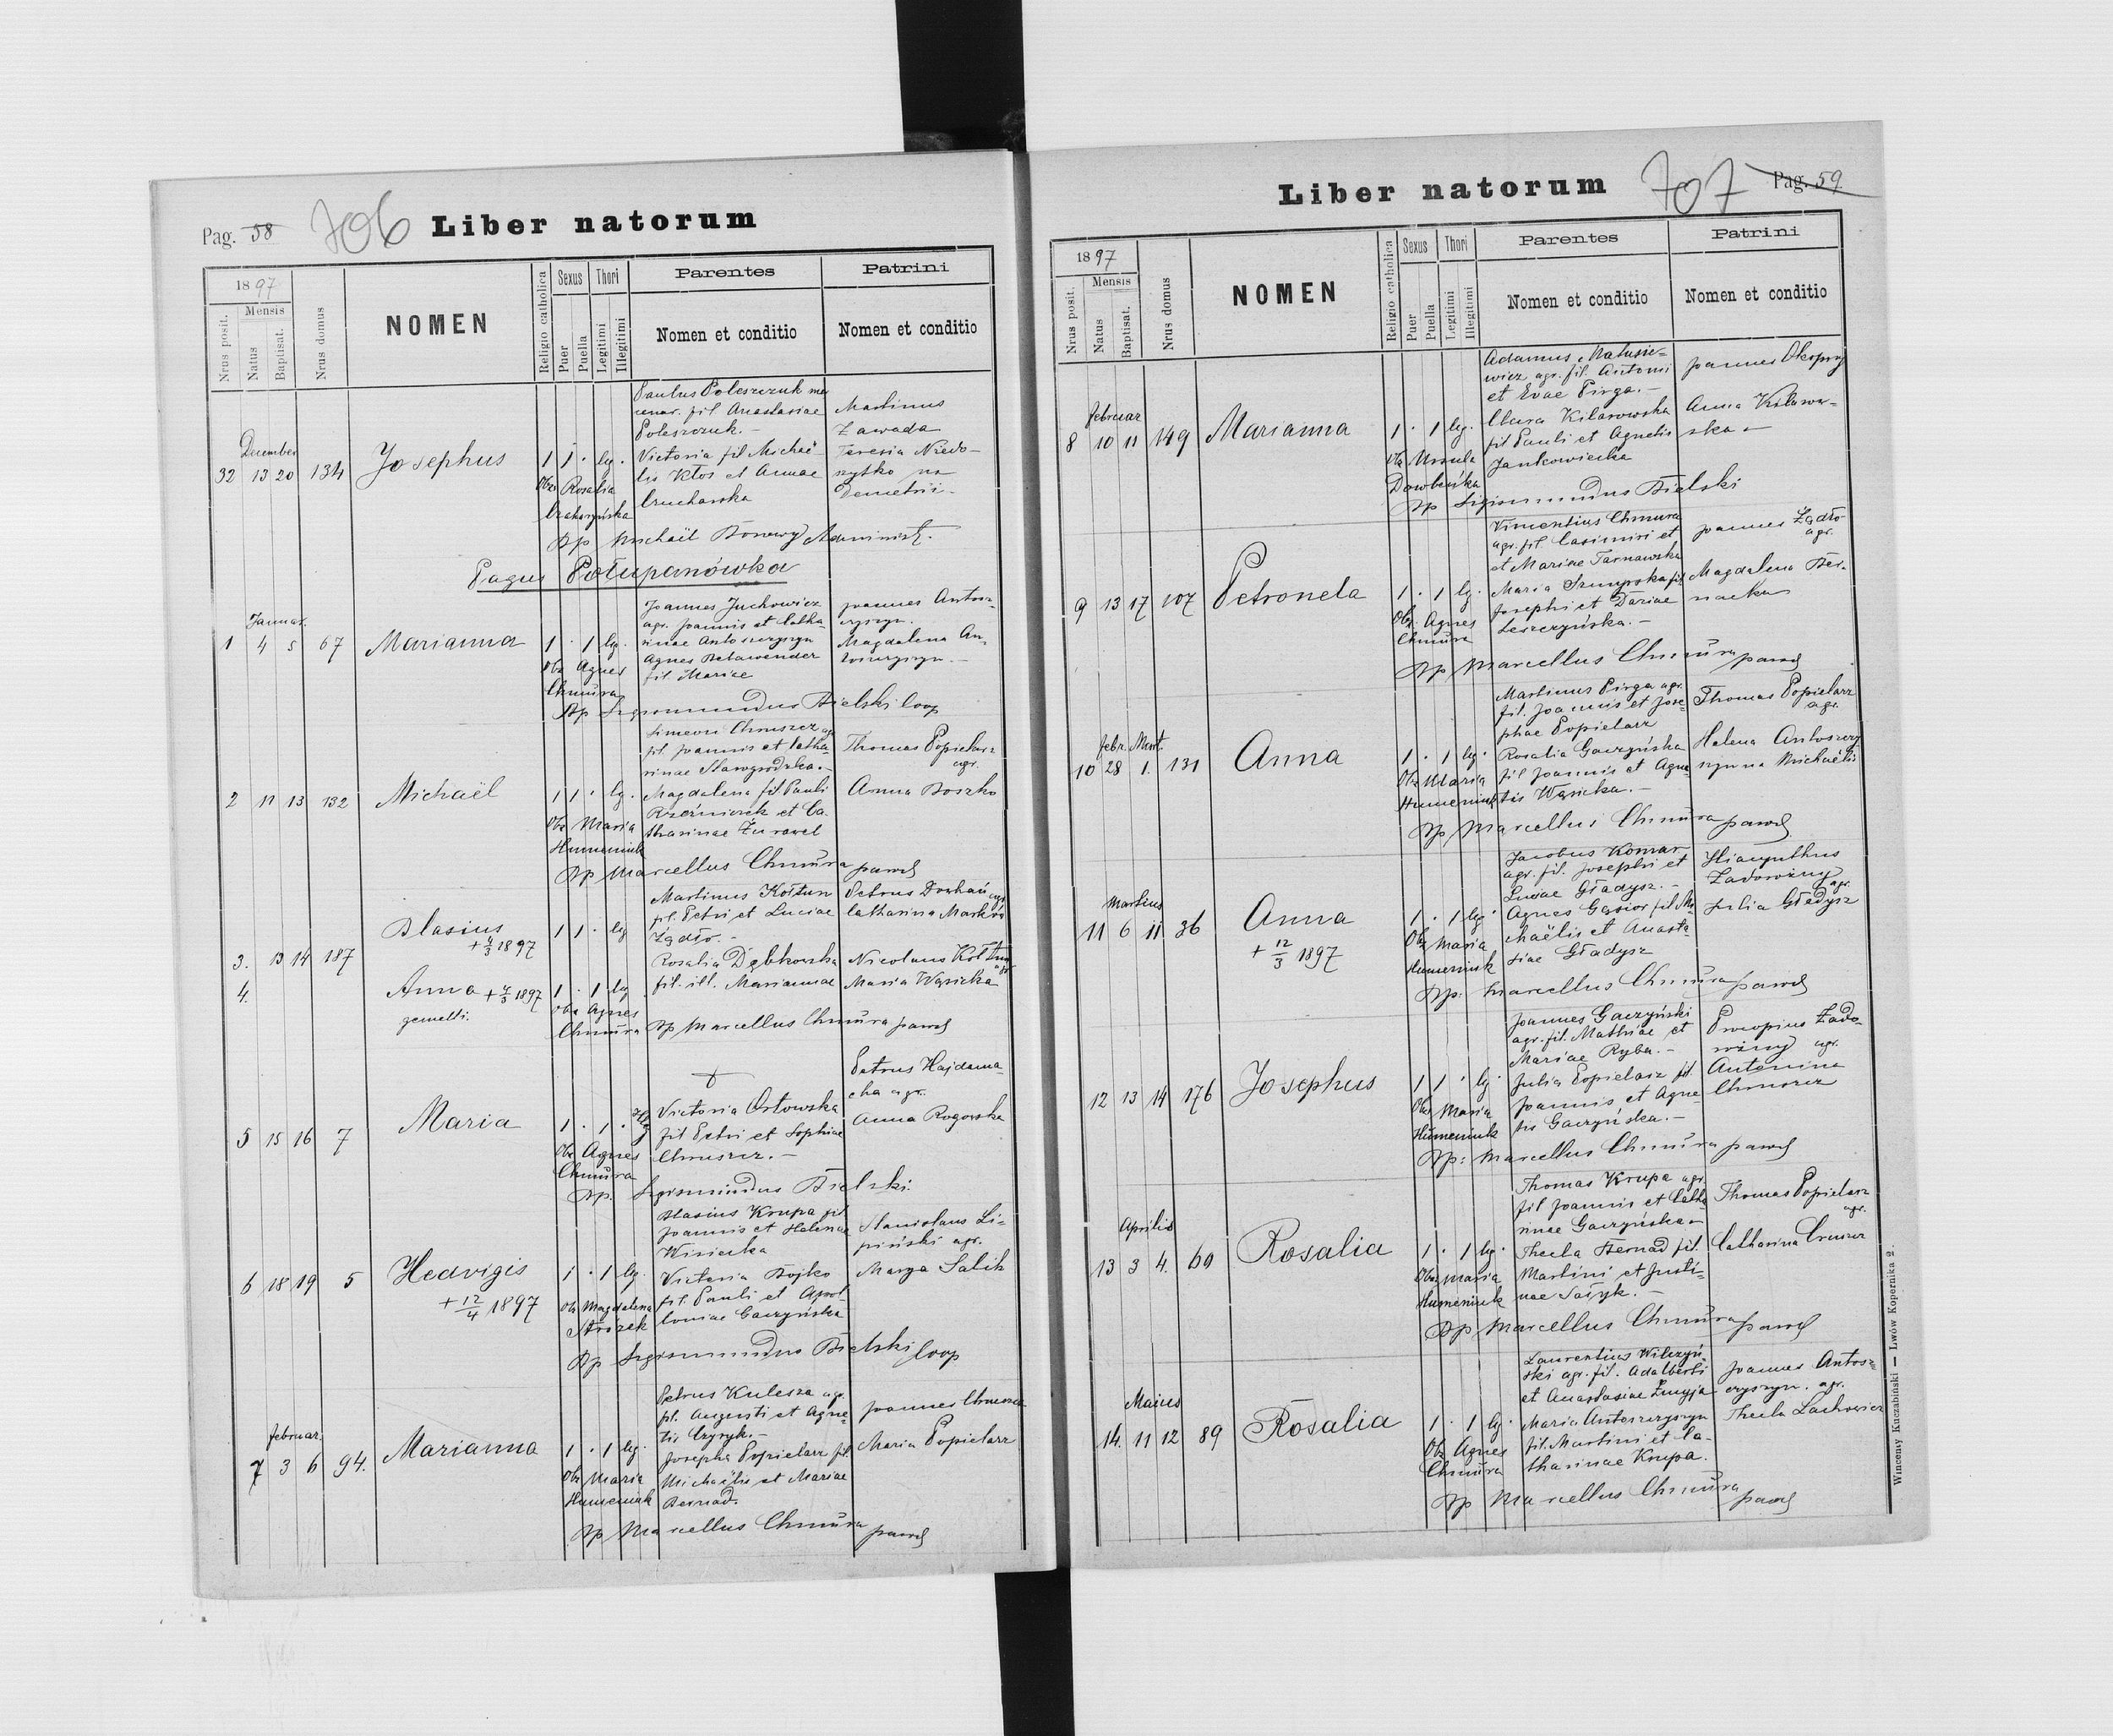 Pag. 58
706
Liber natorum
1897
Mensis
Nrus posit.
Natus
Baptisat.
Nrus domus
NOMEN
Religio catholica
Sexus
Puer
Puella
Thori
Legitimi
Illegitimi
Parentes
Nomen et conditio
Patrini
Nomen et conditio
December
32 13 20 134 Josephus 1 1 · lg.
Obs. Rosalia
Paulus Poleszczuk
fil Anastasiae
Poleszczuk. –
Victoria fil Michaë-
lis Kłos et Annae
Martinus
Zawada
Teresia
Demetrii –
Bp Michaël Administ.
Pagus Połupanówka
Januar.
1 4 5 67 Marianna 1 · 1 lg.
Obs Agnes
Chmura
Joannes Juchowicz
agr. Joannis et Catha-
rinae Antoszczyszyn
Agnes
fil Mariae
Joannes Antosz-
czyszyn.
Magdalena An-
Bp Sigismundus Bielski Coop
2 11 13 132 Michaël 1 1 · lg.
Obs Maria
Humeniuk
Simeon Chruszcz agr
fil. Joannis et Catha-
rinae
Magdalena fil Pauli
et Ca-
tharinae Żurawel
Thomas Popielarz
agr.
Anna Boszko
Bp Marcellus Chmura
3. 13 14 187 Blasius 1 1 · lg
+ 4/3 1897
4. Anna + 4/3 1897 1 · 1 lg
gemelli.
Obs Agnes
Chmura
Martinus Kołtun
fil. Petri et Luciae
Żądło. –
Rosalia Dąbkowska
fil. ill. Mariannae
Petrus
Catharina
Nicolaus Kołtun
agr
Maria Wąsicka
Bp Marcellus Chmura
5 15 16 7 Maria 1 · 1 ·
Obs Agnes
Chmura
Victoria Orłowska
fil Petri et Sophiae
Chruszcz. –
Petrus Hajdama-
cha agr.
Anna Rogowska
Bp. Sigismundus Bielski
6 18 19 5 Hedvigis 1 · 1 lg.
+ 12/4 1897
Obs Magdalena
Blasius Krupa fil
Joannis et Helenae
Victoria Bojko
fil. Pauli et Apol-
loniae Gaczyńska
Stanislaus Li-
piński agr.
Marya Salik
Bp Sigismundus Bielski Coop
februar.
7 3 6 94. Marianna 1 · 1 lg.
Obs Maria
Humeniuk
Petrus Kulesza agr.
fil. Augusti et Agne-
tis
Josepha Popielarz fil.
Michaëlis et Mariae
Bernad.
Joannes
Maria Popielarz
Bp Marcellus Chmura
Liber natorum
707
Pag. 59
1897
Mensis
Nrus posit.
Natus
Baptisat.
Nrus domus
NOMEN
Religio catholica
Sexus
Puer
Puella
Thori
Legitimi
Illegitimi
Parentes
Nomen et conditio
Patrini
Nomen et conditio
februar
8 10 11 149 Marianna 1 · 1 lg.
Obs Ursula
Adamus Matusie-
wicz agr. fil. Antoni
et Evae Pirga. –
Clara Kilarowska
fil Pauli et Agnetis
Jankowiecka
Joannes
Anna Kilarow-
ska –
Bp Sigismundus Bielski
9 13 17 107 Petronela 1 · 1 lg.
Obs. Agnes
Chmura
Vincentius Chmura
agr. fil. Casimiri et
et Mariae Tarnawska
Maria fil
Josephi et
Leszczyńska. –
Joannes Żądło
agr.
Magdalena Ber-
nacka
Bp Marcellus Chmura
febr. Mart.
10 28 1. 131 Anna 1 · 1 lg.
Obs Maria
Humeniuk
Martinus Pirga agr.
fil. Joannis et Jose-
phae Popielarz
Rosalia Gaczyńska
fil Joannis et Agne-
tis Wąsicka. –
Thomas Popielarz
agr.
Helena Antoszczy
szyn na Michaëlis
Bp Marcellus Chmura
Martius
11 6 11 36 Anna 1 · 1 lg.
+ 12/3 1897
Obs Maria
Humeniuk
Jacobus Komar
agr. fil. Josephi et
Luciae Gładysz. –
Agnes Gąsior fil Mi-
chaëlis et Anasta-
siae Gładysz
Hiacynthus
Zadorożny
agr.
Julia Gładysz
Bp: Marcellus Chmura
12 13 14 176 Josephus 1 1 · lg.
Obs Maria
Humeniuk
Joannes Gaczyński
agr. fil. Mathiae et
Mariae Ryba. –
Julia Popielarz fil.
Joannis et Agne-
tis Gaczyńska. –
Procopius Zado-
rożny agr.
Antonina
Bp: Marcellus Chmura
Aprilis
13 3 4. 60 Rosalia 1 · 1 lg.
Obs. Maria
Humeniuk
Thomas Krupa agr.
fil Joannis et Catha-
rinae Gaczyńska –
Thecla Bernad fil.
Martini et Justi-
nae –
Thomas Popielarz
agr.
Catharina
Bp Marcellus Chmura
Maius
14. 11 12 89 Rosalia 1 · 1 lg.
Obs Agnes
Chmura
Laurentius Wilczyń-
ski agr. fil. Adalberti
et Anastasiae
Maria Antoszczyszyn
fil. Martini et Ca-
tharinae Krupa.
Joannes Antosz-
czyszyn. agr.
Thecla Lachowicz
Bp Marcellus Chmura
Wincenty Kuczabiński — Lwów Kopernika 2.